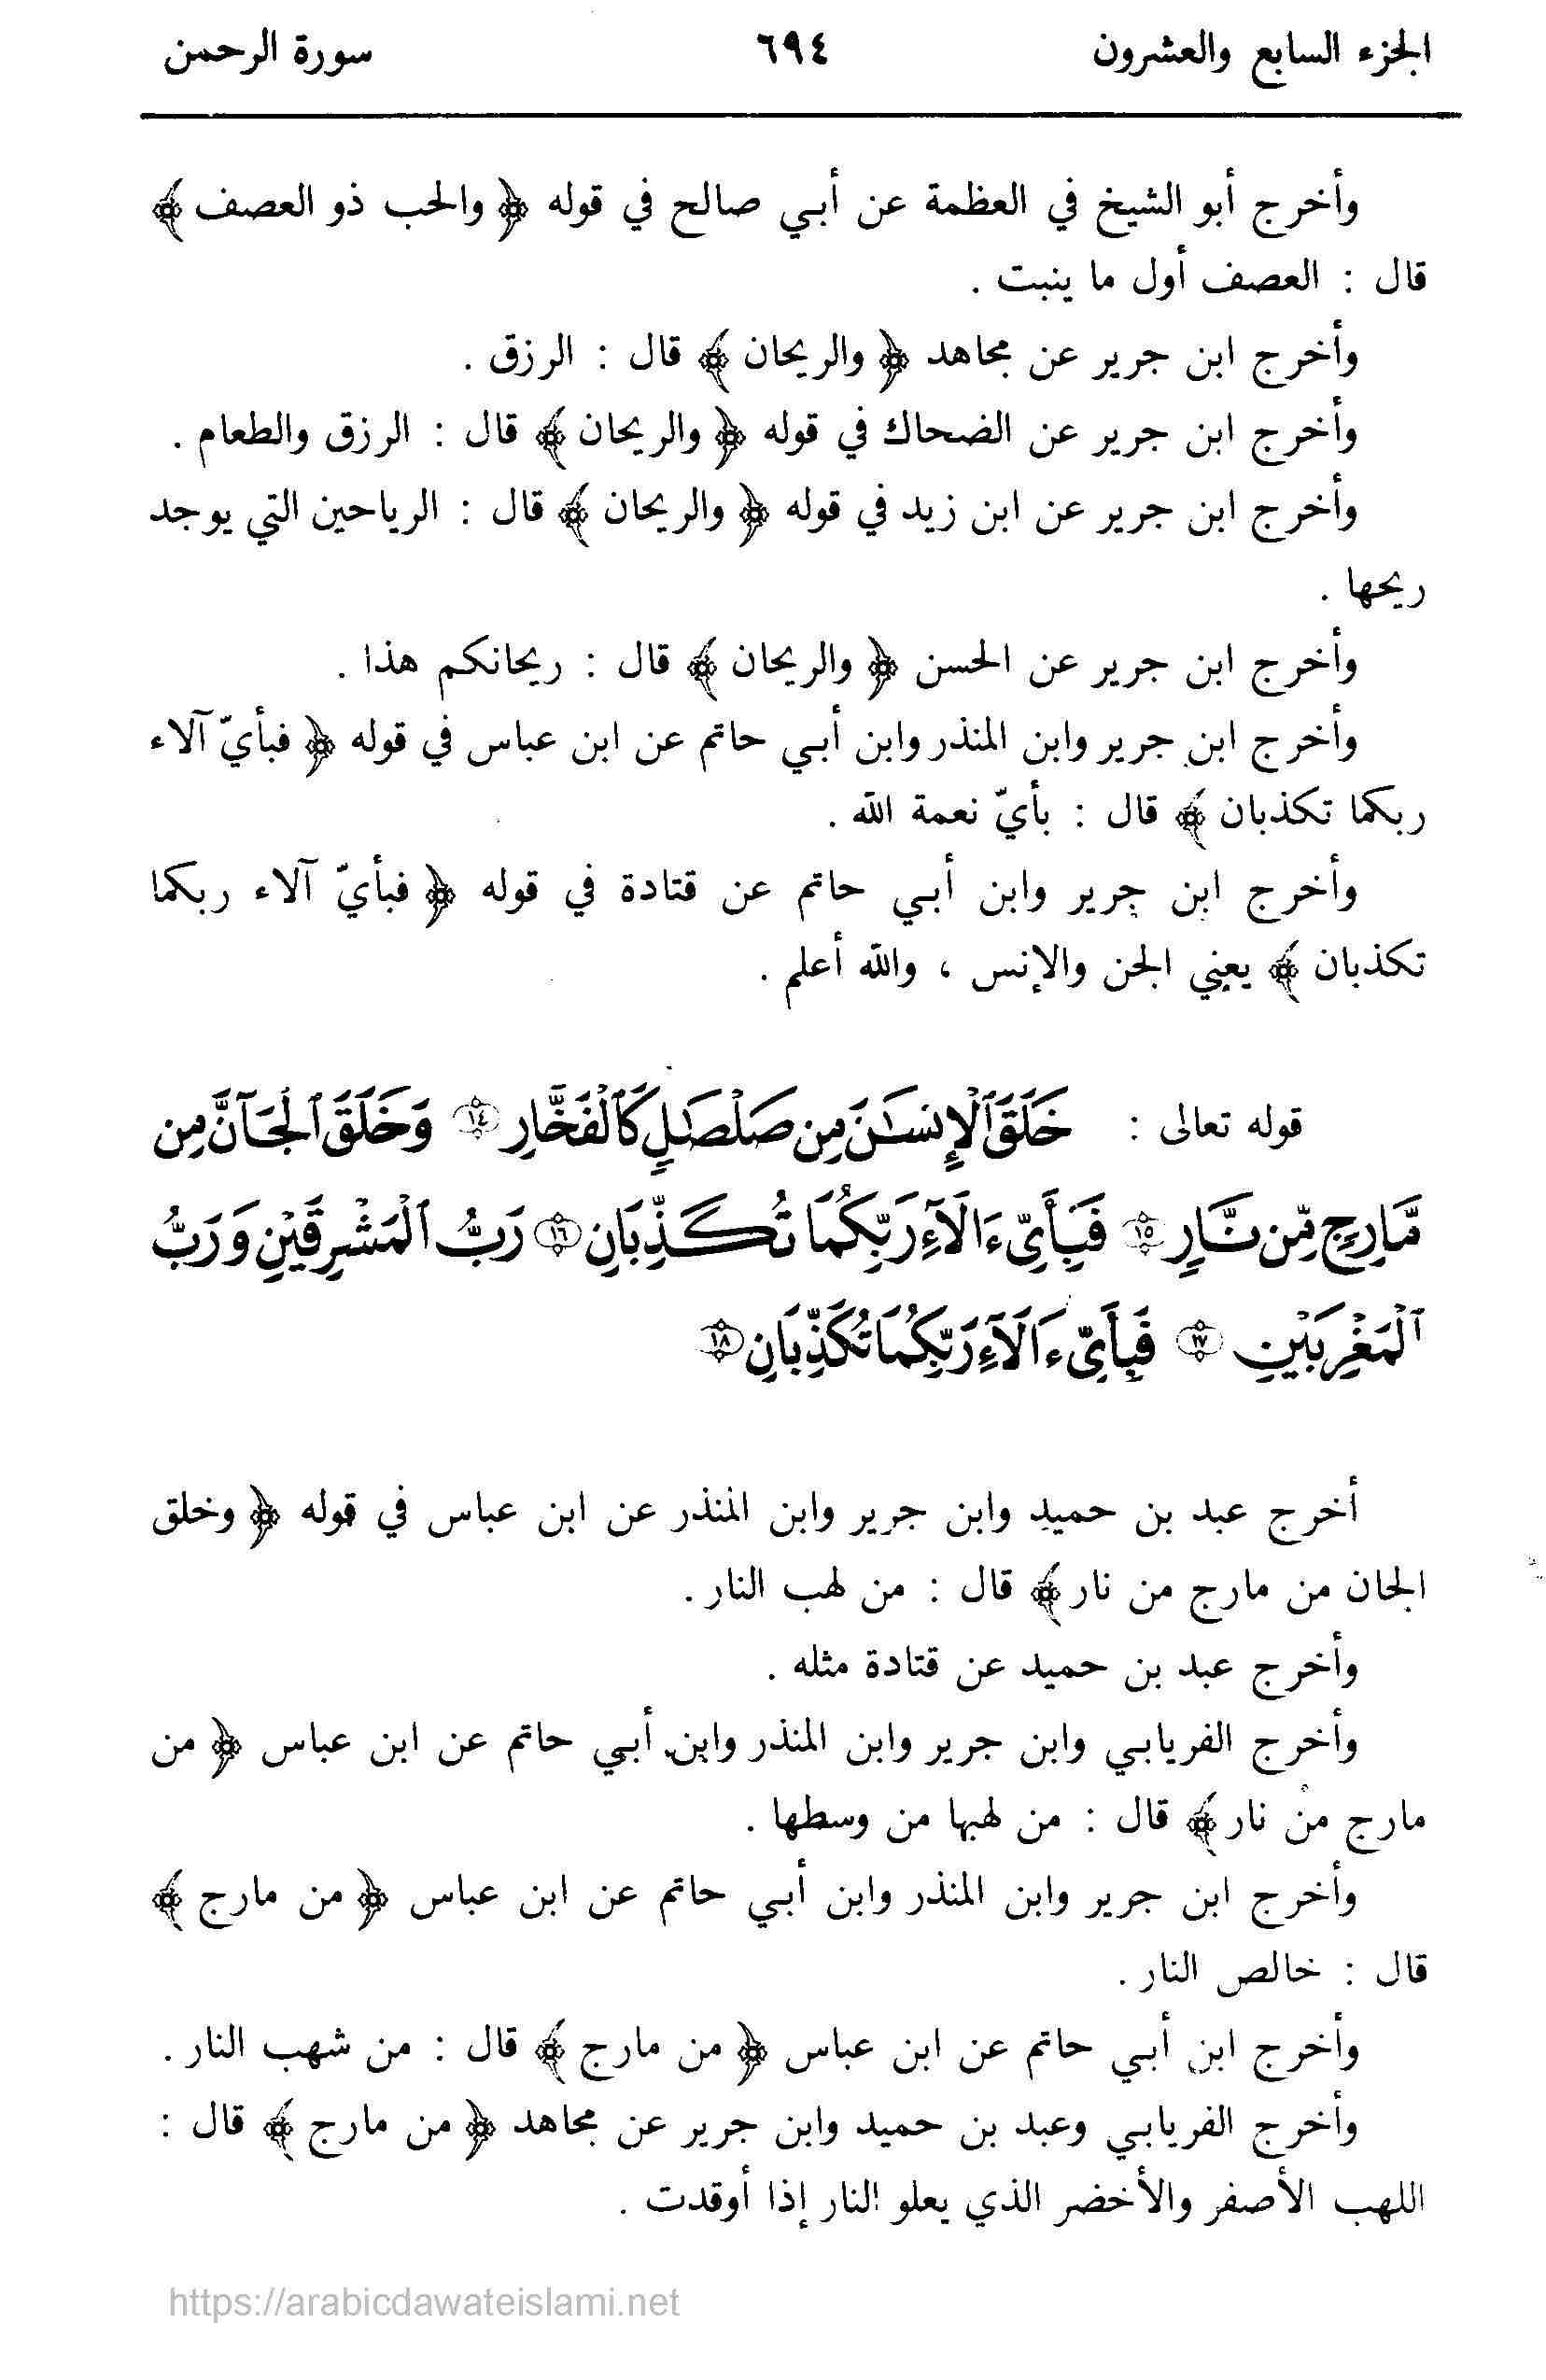 الجزء السابع والعشرون ٦٩٤ سورة الرحمن
وأخرج أبو الشيخ في العظمة عن أبـي صالح في قوله ﴿ والحب ذو العصف ﴾
قال : العصف أول ما ينبت .
وأخرج ابن جرير عن مجاهد ﴿ والريحان ﴾ قال : الرزق .
وأخرج ابن جرير عن الضحاك في قوله ﴿ والريحان ﴾ قال : الرزق والطعام .
وأخرج ابن جرير عن ابن زيد في قوله ﴿ والريحان ﴾ قال : الرياحين التي يوجد
ريحها .
وأخرج ابن جرير عن الحسن ﴿ والريحان ﴾ قال : ريحانكم هذا .
وأخرج ابن جرير وابن المنذر وابن أبـي حاتم عن ابن عباس في قوله ﴿ فبأيّ آلاء
ربكما تكذبان ﴾ قال : بأيّ نعمة الله .
وأخرج ابن جرير وابن أبـي حاتم عن قتادة في قوله ﴿ فبأيّ آلاء ربكما
تكذبان ﴾ يعني الجن والإنس ، والله أعلم .
قوله تعالى : خَلَقَ ٱلْإِنسَـٰنَ مِن صَلْصَـٰلٍ كَٱلْفَخَّارِ ١٤ وَخَلَقَ ٱلْجَآنَّ مِن
مَّارِجٍ مِّن نَّارٍ ١٥ فَبِأَىِّ ءَالَآءِ رَبِّكُمَا تُكَذِّبَانِ ١٦ رَبُّ ٱلْمَشْرِقَيْنِ وَرَبُّ
ٱلْمَغْرِبَيْنِ ١٧ فَبِأَىِّ ءَالَآءِ رَبِّكُمَا تُكَذِّبَانِ ١٨
أخرج عبد بن حميد وابن جرير وابن المنذر عن ابن عباس في قوله ﴿ وخلق
الجان من مارج من نار ﴾ قال : من لهب النار .
وأخرج عبد بن حميد عن قتادة مثله .
وأخرج الفريابـي وابن جرير وابن المنذر وابن أبـي حاتم عن ابن عباس ﴿ من
مارج من نار ﴾ قال : من لهبها من وسطها .
وأخرج ابن جرير وابن المنذر وابن أبـي حاتم عن ابن عباس ﴿ من مارج ﴾
قال : خالص النار .
وأخرج ابن أبـي حاتم عن ابن عباس ﴿ من مارج ﴾ قال : من شهب النار .
وأخرج الفريابـي وعبد بن حميد وابن جرير عن مجاهد ﴿ من مارج ﴾ قال :
اللهب الأصفر والأخضر الذي يعلو النار إذا أوقدت .
https://arabicdawateislami.net